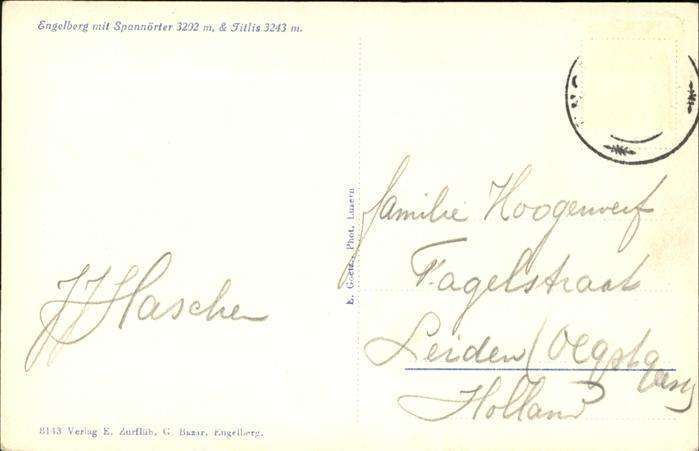 Engelberg mit Spannörter 3202 m, & Titlis 3243 m.
E. Goetz, Phot. Luzern
JJ Haschen
familie Hoogerwerf
Fagelstraat
Leiden (Oegstgeest)
Holland
8143 Verlag E. Zurflüh, G. Bazar, Engelberg.